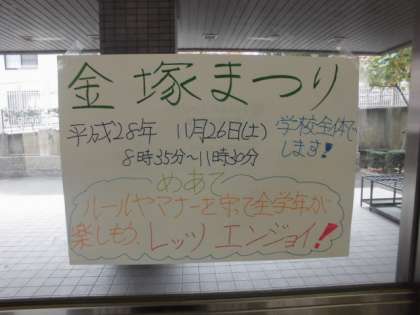 金塚まつり
平成28年 11月26日(土)
8時35分～11時30分
学校全体で
します!
めあて
ルールやマナーを守て全学年が
楽しもう、レッツ エンジョイ!